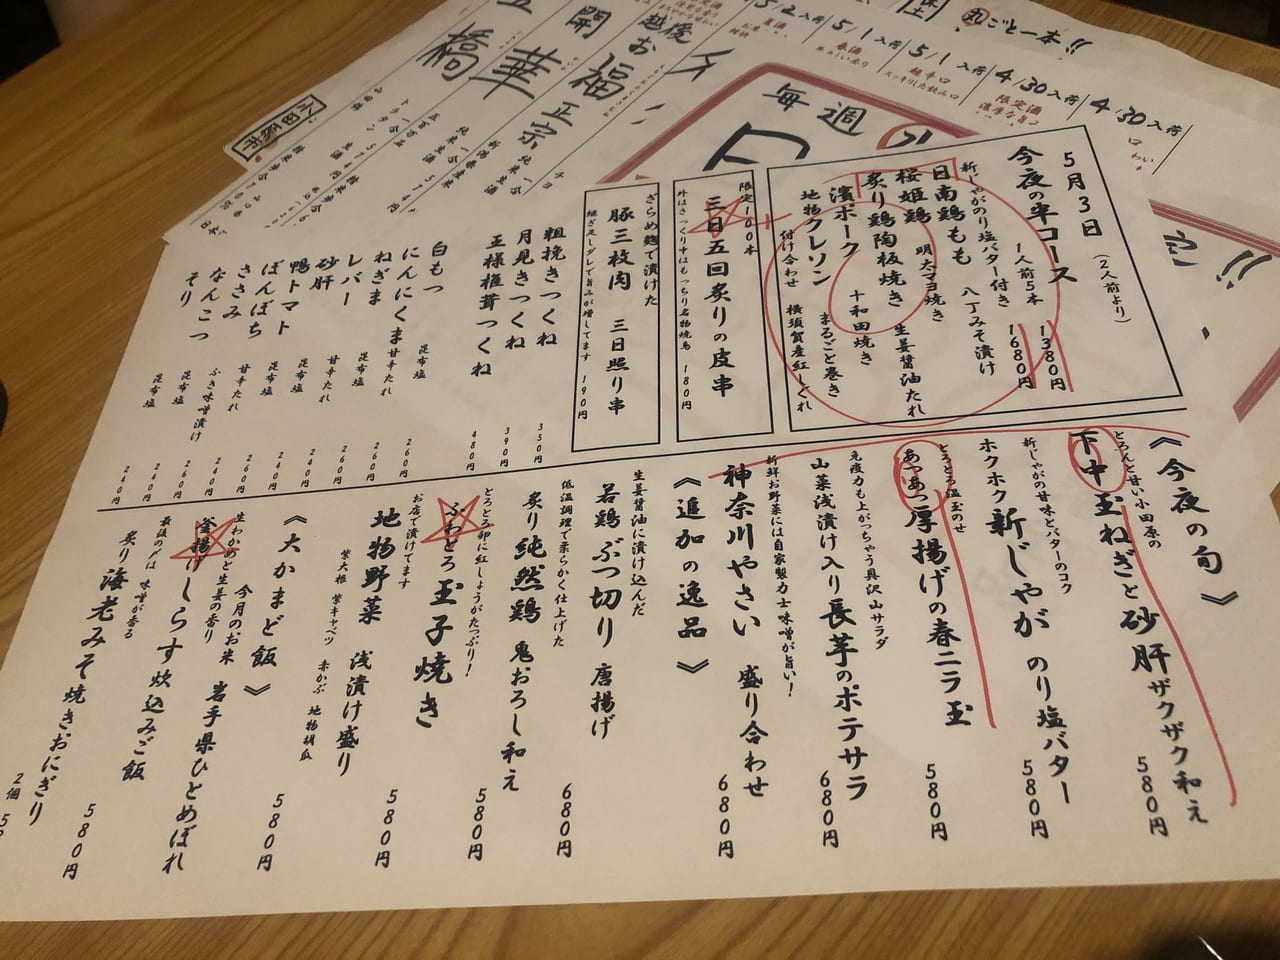 5月3日
今夜の串コース
(2人前より)
1人前5本
1380円
1680円
新じゃがのり塩バター付き
日南鶏もも 八丁みそ漬け
桜姫鶏 明太マヨ焼き
炙り鶏陶板焼き 生姜醤油たれ
濱ポーク 十和田焼き
地物クレソン まるごと巻き
付け合わせ 横須賀産紅しぐれ
限定100本
三日五回炙りの皮串
外はさっくり中はもっちり名物焼鳥 180円
ざらめ麹で漬けた
豚三枚肉 三日照り串
継ぎ足しダレで旨みが増してます 190円
粗挽きつくね 350円
月見きつくね 390円
王様椎茸つくね 480円
白もつ 昆布塩 260円
にんにくま 甘辛たれ 260円
ねぎま 昆布塩 260円
レバー 甘辛たれ 240円
砂肝 昆布塩 240円
鴨トマト 昆布塩
ぼんぼち 甘辛たれ 260円
ささみ ふき味噌漬け 260円
なんこつ 昆布塩 240円
そり 昆布塩 240円
《今夜の旬》
とろんと甘い小田原の
下中玉ねぎと砂肝ザクザク和え 580円
新じゃがの甘味とバターのコク
ホクホク新じゃが のり塩バター 580円
とろとろ温玉のせ
あつあつ厚揚げの春ニラ玉 580円
免疫力も上がっちゃう具沢山サラダ
山菜浅漬け入り長芋のポテサラ 680円
新鮮お野菜には自家製力士味噌が旨い!
神奈川やさい 盛り合わせ 680円
《追加の逸品》
生姜醤油に漬け込んだ
若鶏ぶつ切り 唐揚げ 680円
低温調理で柔らかく仕上げた
炙り純然鶏 鬼おろし和え 580円
とろとろ卵に紅しょうがたっぷり!
ふわとろ玉子焼き 580円
お店で漬けてます
地物野菜 浅漬け盛り
紫大根 紫キャベツ 赤かぶ 地物胡瓜
580円
《大かまど飯》
今月のお米 岩手県ひとめぼれ
生わかめと生姜の香り
釜揚げしらす炊込みご飯 580円
最後の〆は 味噌が香る
炙り海老みそ焼きおにぎり
2個
丸ごと一本!!
4・30入荷
4・30入荷
限定酒
5/1入荷
超辛口
スッキリした飲み口
5/1入荷
春酒
5/2入荷
毎週
越後
お福
正宗
開華